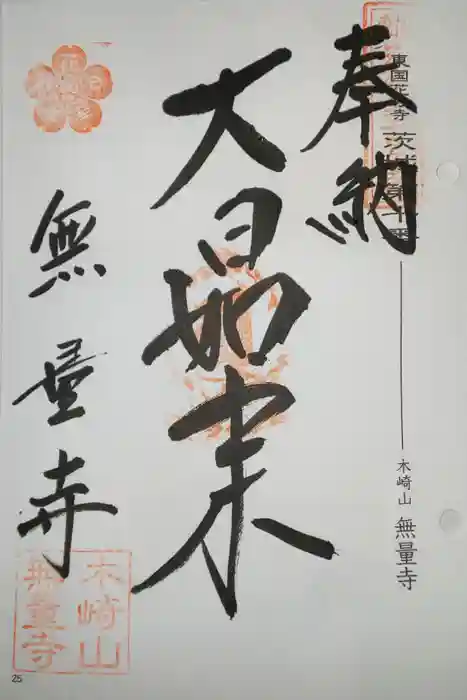 東国花の寺 茨城第十番 木崎山 無量寺
奉納
大日如来
無量寺
木崎山
無量寺
25